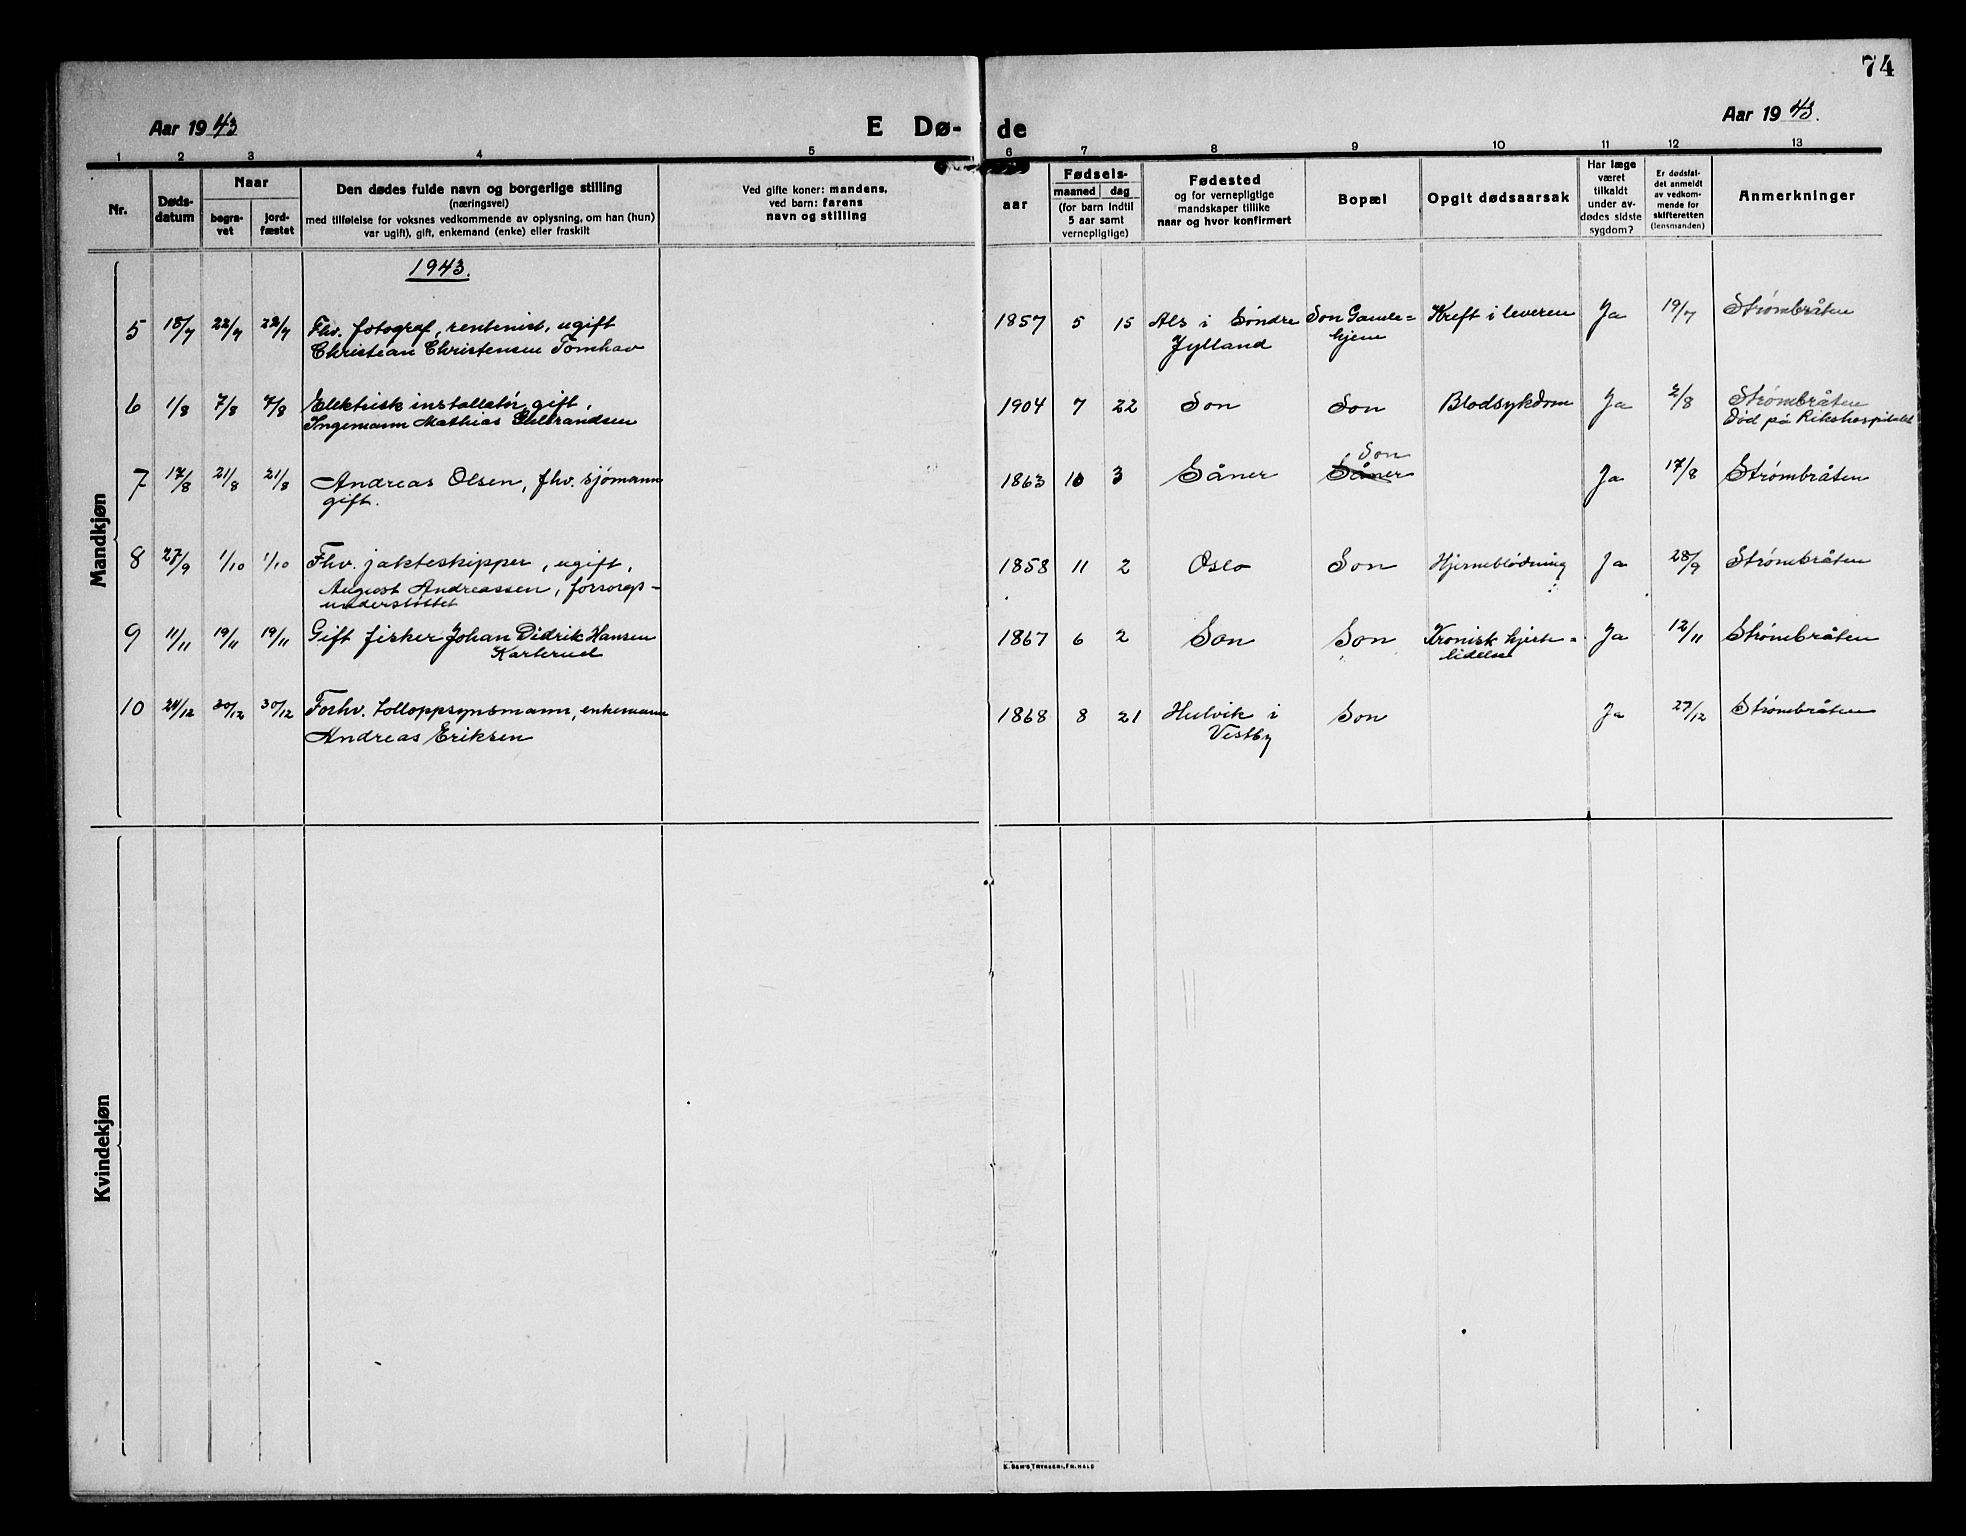 74
Aar 1943
E Dø-
de
Aar 1943.
1 2 3 4 5 6 7 8 9 10 11 12 13
Nr.
Døds-
datum
Naar
begra-
vet
jord-
fæstet
Den dødes fulde navn og borgerlige stilling
(næringsvei)
med tilføielse for voksnes vedkommende av oplysning, om han (hun)
var ugift), gift, enkemand (enke) eller fraskilt
Ved gifte koner: mandens,
ved barn: farens
navn og stilling
aar
Fødsels-
maaned dag
(for barn indtil
5 aar samt
vernepligtige)
Fødested
og for vernepligtige
mandskaper tillike
naar og hvor konfirmert
Bopæl
Opgit dødsaarsak
Har læge
været
tilkaldt
under av-
dødes sidste
sygdom?
Er dødsfal-
det anmeldt
av vedkom-
mende for
skifteretten
(lensmanden)
Anmerkninger
Mandkjøn
1943.
5 18/7 22/7 22/7 Fhv. fotograf, rentenist, ugift 1857 5 15 Als i Söndre Son Gamle= Kreft i leveren Ja 19/7 Strømbråten
Christian Christensen Tomhav Jylland hjem
6 1/8 7/8 7/8 Elektrisk installatør, gift, 1904 7 22 Son Son Blodsykdom Ja 2/8 Strømbråten
Ingemann Mathias Gulbrandsen Död på Rikshospitalet
Son
7 17/8 21/8 21/8 Andreas Olsen, fhv. sjømann 1863 10 3 Såner Såner Ja 17/8 Strømbråten
gift.
8 27/9 1/10 1/10 Fhv. jakteskipper, ugift, 1858 11 2 Oslo Son Hjerneblödning Ja 28/9 Strømbråten
August Andreassen, forsorgs-
understöttet
9 11/11 19/11 19/11 Gift fisker Johan Didrik Hansen 1867 6 2 Son Son Kronisk hjerte= Ja 12/11 Strømbråten
Karterud lidelse
10 24/12 30/12 30/12 Forhv. tolloppsynsmann, enkemann 1868 8 21 Hulvik i Son Ja 27/12 Strømbråten
Andreas Eriksen Vestby
Kvindekjøn
E. SEM'S TRYKKERI, FR.HALD